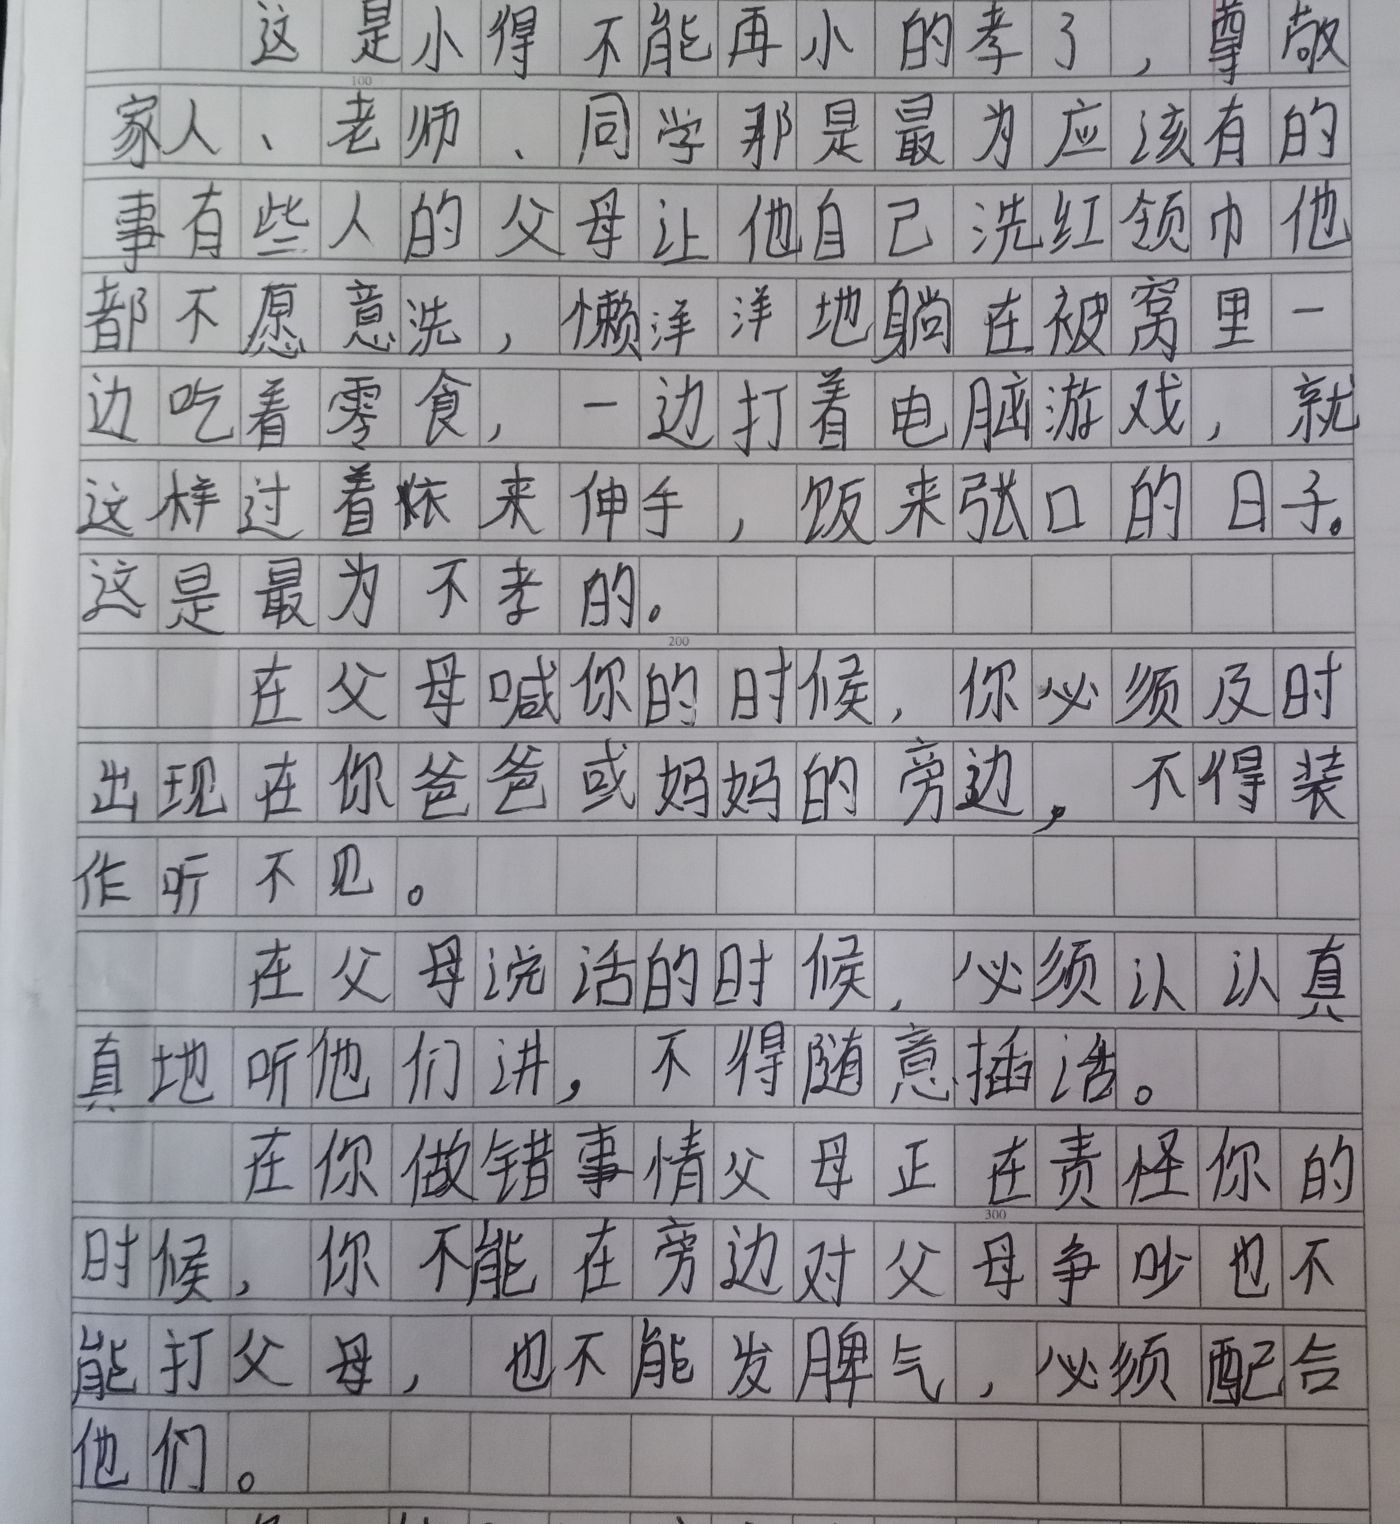 这是小得不能再小的孝了，尊敬
100
家人、老师、同学那是最为应该有的
事有些人的父母让他自己洗红领巾他
都不愿意洗，懒洋洋地躺在被窝里一
边吃着零食，一边打着电脑游戏，就
这样过着依来伸手，饭来张口的日子。
这是最为不孝的。
200
在父母喊你的时候，你必须及时
出现在你爸爸或妈妈的旁边，不得装
作听不见。
在父母说话的时候，必须认认真
真地听他们讲，不得随意插话。
在你做错事情父母正在责怪你的
300
时候，你不能在旁边对父母争吵也不
能打父母，也不能发脾气，必须配合
他们。